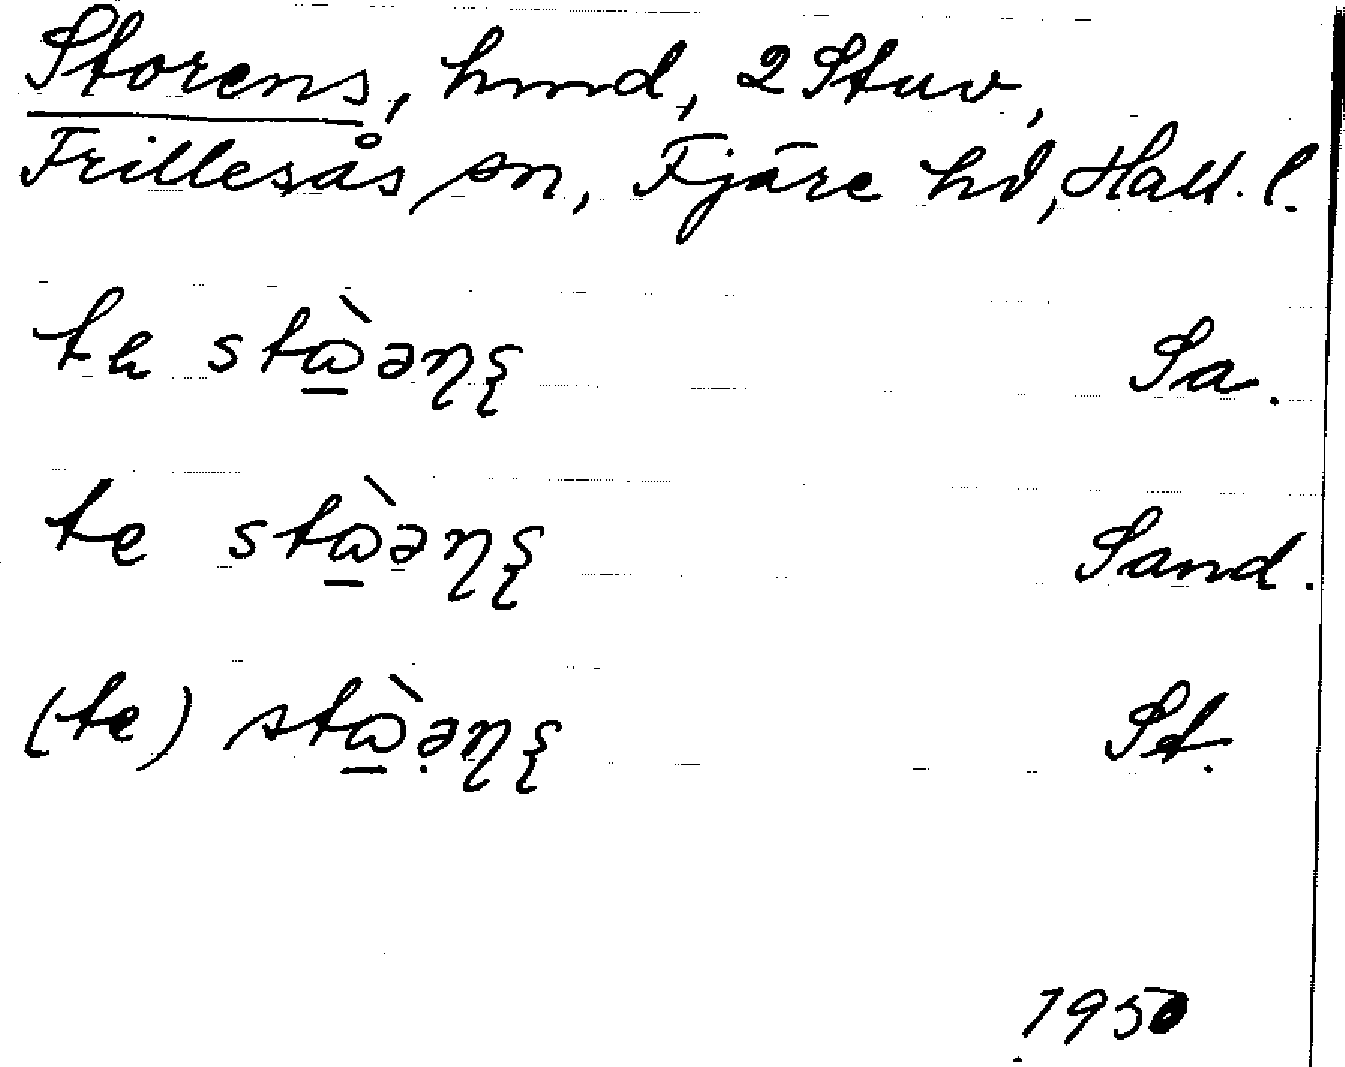 Storens, hmd, 2 Stuv,
Frillesås sn, Fjäre hd, Hall. l.
ta stɷ̠̀əŋξ Sa.
te stɷ̠̀əŋξ Sand.
(te) stɷ̠̀ə̣ŋξ St.
1950